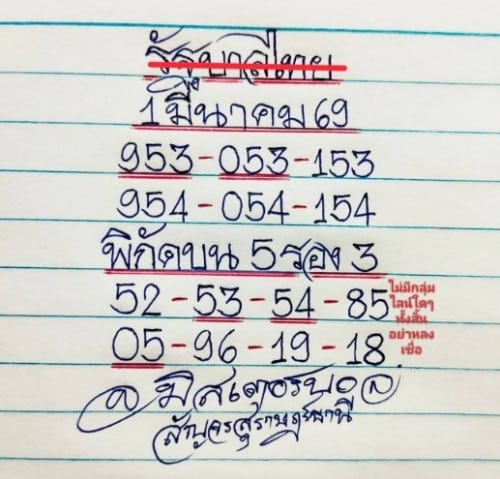 รัฐบาลไทย
1 มีนาคม 69
953-053-153
954-054-154
พิกัดบน 5 รอง 3
52-53-54-85
05-96-19-18
ไม่มีกลุ่ม
ไลน์ใดๆ
ทั้งสิ้น
อย่าหลง
เชื่อ
สัญจรสุราษฎร์ธานี